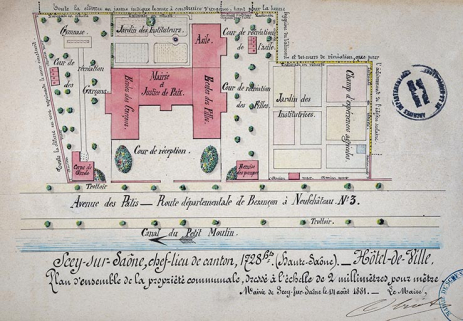 Toute la clôture en jaune indique
Gymnase
Jardin des Instituteurs
Asile
Cour de récréation
de
l'asile
Cour de récréation
des
Garçons
Mairie
&
Justice de Paix
École des Garçons
École des Filles
Cour de récréation
des Filles
Jardin des
Institutrices
Champ d'expériences agricoles
Cour de réception
Corps de
Garde
Remise
des pompes
Trottoir
Avenue des Pâtis — Route départementale de Besançon à Neufchâteau N° 3.
Trottoir
Canal du Petit Moulin.
Scey-sur-Saône, chef-lieu de canton, 1728 hts (Haute-Saône). — Hôtel-de-Ville.
Plan d'ensemble de la propriété communale, dressé à l'échelle de 2 millimètres pour mètre
Mairie de Scey-sur-Saône le 14 août 1881. — Le Maire,